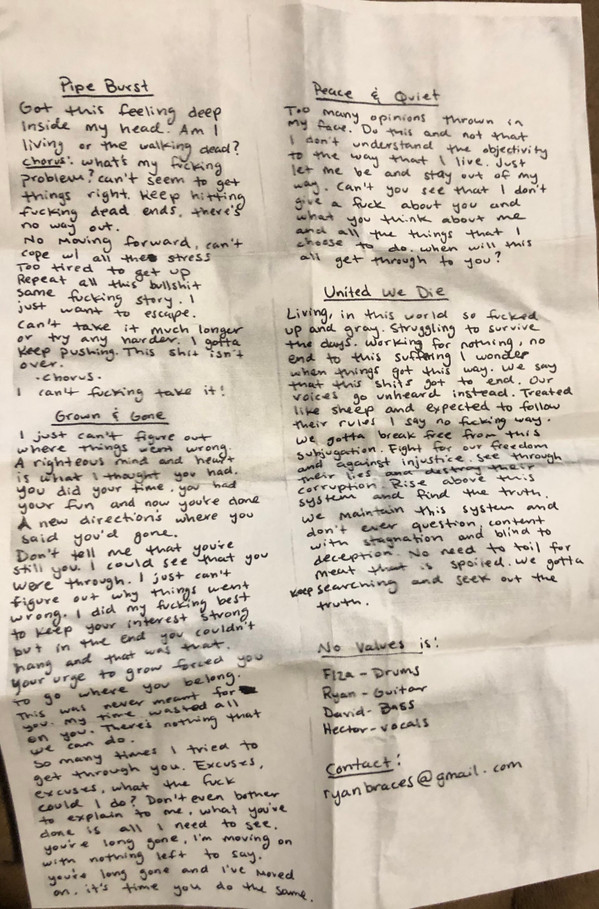 Pipe Burst
Got this feeling deep
Inside my head. Am I
living or the walking dead?
Chorus: what's my fucking
problem? can't seem to get
things right. Keep hitting
fucking dead ends, there's
no way out.
No moving forward, can't
cope w/ all the stress
Too tired to get up
Repeat all this bullshit
same fucking story. I
just want to escape.
Can't take it much longer
or try any harder. I gotta
keep pushing. This shit isn't
over.
-Chorus-
I can't fucking take it!
Grown & Gone
I just can't figure out
where things went wrong.
A righteous mind and heart
is what I thought you had.
You did your time, you had
your fun and now you're done
A new direction's where you
said you'd gone.
Don't tell me that you're
still you. I could see that you
were through. I just can't
figure out why things went
wrong. I did my fucking best
to keep your interest strong
but in the end you couldn't
hang and that was that.
Your urge to grow forced you
to go where you belong.
This was never meant for
you. My time wasted all
on you. There's nothing that
we can do.
So many times I tried to
get through you. Excuses,
excuses, what the fuck
could I do? Don't even bother
to explain to me, what you've
done is all I need to see.
you're long gone, I'm moving on
with nothing left to say.
you're long gone and I've moved
on. it's time you do the same.
Peace & Quiet
Too many opinions thrown in
my face. Do this and not that
I don't understand the objectivity
to the way that I live. Just
let me be and stay out of my
way. Can't you see that I don't
give a fuck about you and
what you think about me
and all the things that I
choose to do. when will this
all get through to you?
United We Die
Living, in this world so fucked
up and gray. Struggling to survive
the days. Working for nothing, no
end to this suffering I wonder
when things got this way. We say
that this shits got to end. Our
voices go unheard instead. Treated
like sheep and expected to follow
their rules I say no fucking way.
We gotta break free from this
subjugation. Fight for our freedom
and against injustice. See through
their lies and destroy their
corruption. Rise above this
system and find the truth.
We maintain this system and
don't ever question, content
with stagnation and blind to
deception. No need to toil for
meat that is spoiled. We gotta
keep searching and seek out the
truth.
No Values is:
Flza - Drums
Ryan - Guitar
David - Bass
Hector - vocals
Contact:
ryanbraces@gmail.com